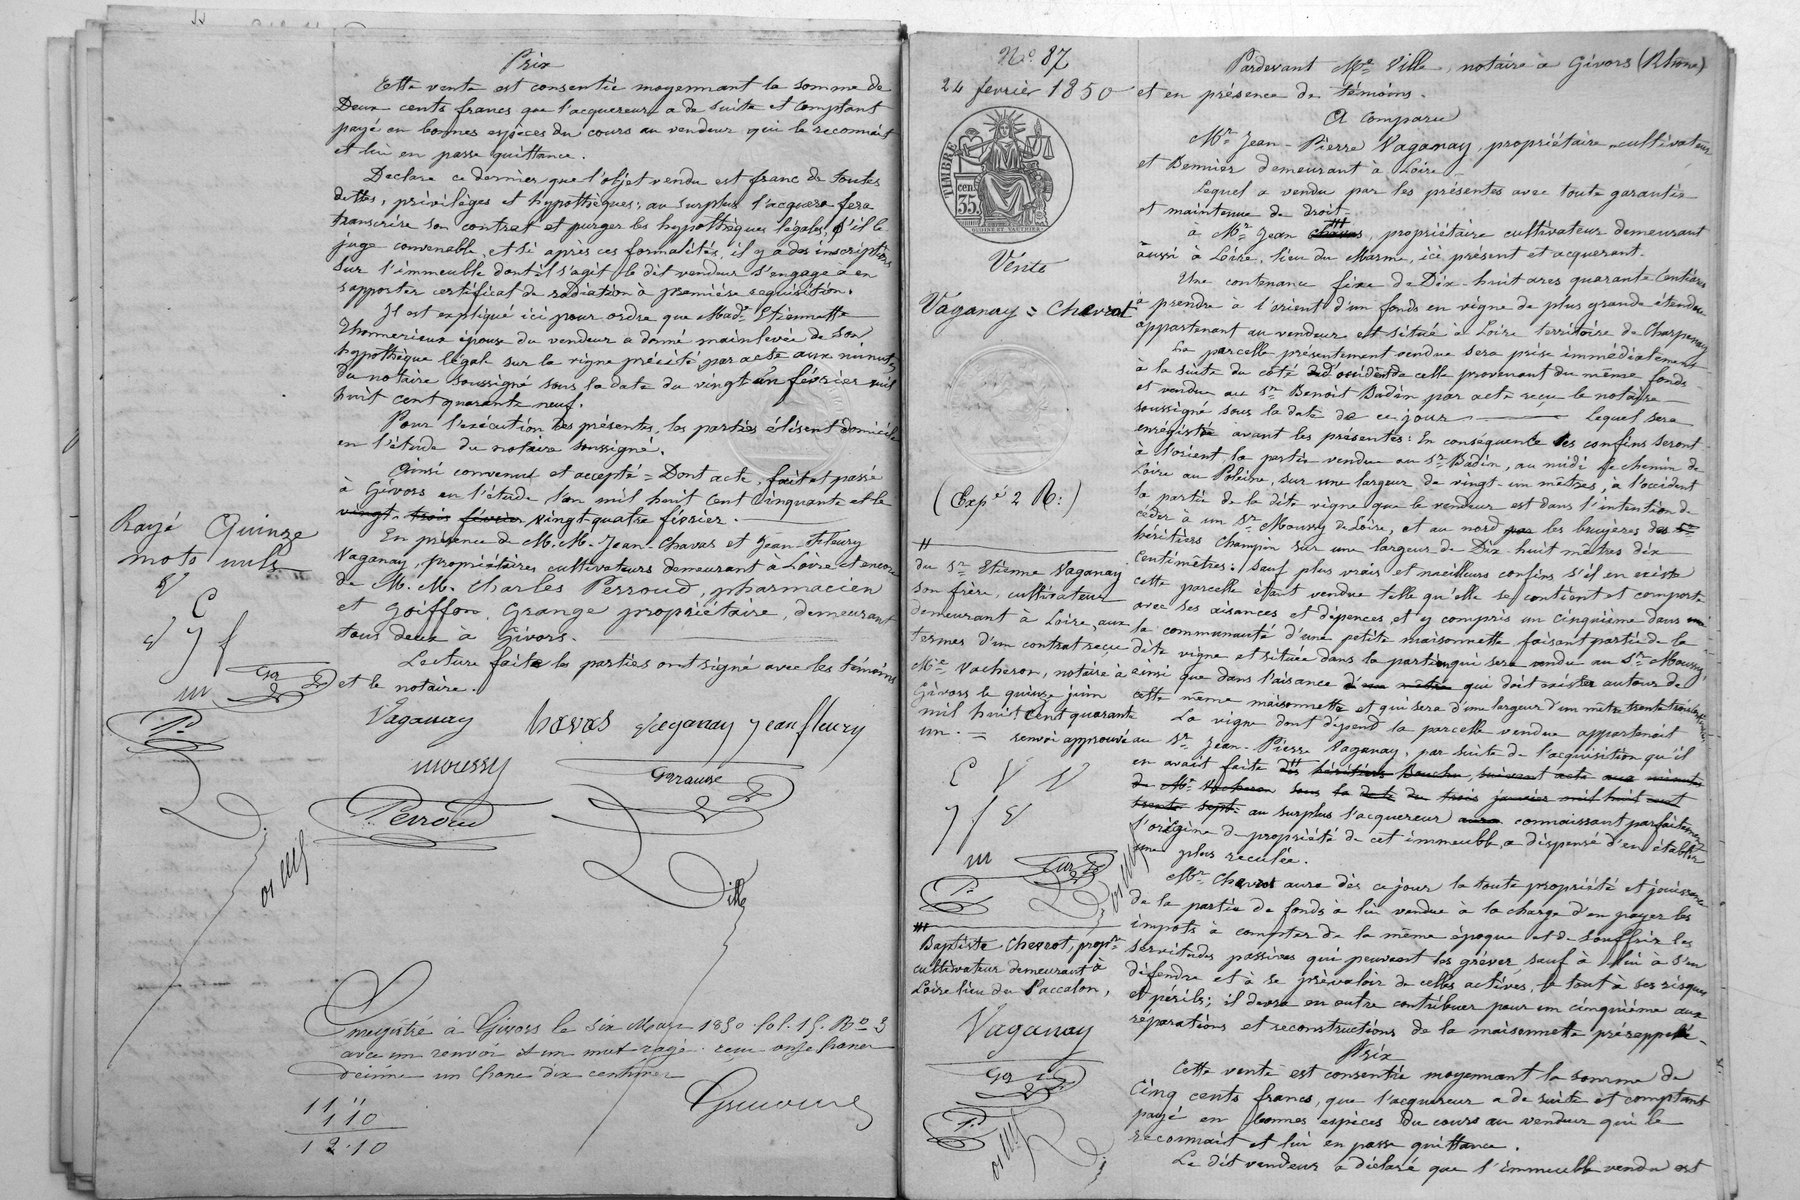 Prix
Cette vente est consentie moyennant la somme de
Deux cents francs que l'acquereur a de suite et comptant
payé en bonnes espèces du cours au vendeur qui le reconnait
et lui en passe quittance.
Declare ce dernier que l'objet vendu est franc de toutes
dettes, privilèges et hypothèques; au surplus l'acquereur fera
transcrire son contrat et purger les hypothèques légales, s'il le
juge convenable, et si après ces formalités, il y a des inscriptions
sur l'immeuble dont il s'agit le dit vendeur s'engage à en
rapporter certificat de radiation à première requisition.
Il est expliqué ici pour ordre que Made Etiennette
Thomerieux épouse du vendeur a donné mainlevée de son
hypothèque légale sur la vigne précitée par acte aux minutes
du notaire soussigné sous la date du vingt un février mil
huit cent quarante neuf.
Pour l'exécution des présentes, les parties élisent domicile
en l'étude du notaire soussigné.
Ainsi convenu et accepté = Dont acte, fait et passé
à Givors en l'étude l'an mil huit cent cinquante et le
vingt-trois février vingt-quatre février.
En présence de M.M. Jean Chavas et Jean-Fleury
Vaganay, propriétaires cultivateurs demeurant à Loire et encore
de M.M. Charles Perroud, pharmacien
et Goiffon Grange propriétaire, demeurant
tous deux à Givors.
Lecture faite les parties ont signé avec les témoins
et le notaire.
Rayé Quinze
mots nuls
V
C
V J f
m
P.
Vaganay havas Vaganay Jean fleury
moussy
Perroud
Ville
Enregistré à Givors le six Mars 1850 fol. 15. Ro 3
avec un renvoi et un mot rayé reçu onze francs
décime un franc dix centimes
11 "
1 10
12.10
No 87
24 février 1850
TIMBRE
35 cen.
Vente
Vaganay = Chevrot
(Expé 2 R:)
du Sr Etienne Vaganay
son frère, cultivateur
demeurant à Loire, aux
termes d'un contrat reçu
Me Vacheron, notaire à
Givors le quinze juin
mil huit cent quarante
un. = renvoi approuvé
C V V
J f V
m
P.
Baptiste Chevrot, propre
cultivateur demeurant à
Loire lieu du Paccalon,
Vaganay
P.
Pardevant Me Ville, notaire à Givors (Rhône)
et en présence de témoins.
A comparu
Mr Jean-Pierre Vaganay, propriétaire-cultivateur
et Dennier demeurant à Loire
Lequel a vendu par les présentes avec toute garantie
et maintenue de droit
à Mr Jean chavas, propriétaire cultivateur demeurant
aussi à Loire, lieu du Marme, ici présent et acquerant.
Une contenance fixe de Dix-huit ares quarante centiares
à prendre à l'orient d'un fonds en vigne de plus grande étendue
appartenant au vendeur et situé à Loire territoire de Charpenay
La parcelle présentement vendue sera prise immédiatement
à la suite du côté d'occident de celle provenant du même fonds
et vendue au Sr Benoit Badin par acte reçu le notaire
soussigné sous la date de ce jour lequel sera
enrégistré avant les présentes: En conséquence les confins seront
à l'orient, la partie vendue au Sr Badin, au midi le chemin de
Loire au Poleine, sur une largeur de vingt-un mètres, à l'occident
la partie de la dite vigne que le vendeur est dans l'intention de
céder à un Sr Moussy de Loire, et au nord par les bruyères des
héritiers Champin sur une largeur de Dix-huit mètres dix
centimètres: sauf plus vrais et meilleurs confins s'il en existe
cette parcelle étant vendue telle qu'elle se contient et comporte
avec ses aisances et dépences, et y compris un cinquième dans
la communauté d'une petite maisonnette faisant partie de la
dite vigne et située dans la partie qui sera vendue au Sr Moussy,
ainsi que dans l'aisance d'un mètre qui doit exister autour de
cette même maisonnette et qui sera d'une largeur d'un mètre trente trois centimètres
La vigne dont dépend la parcelle vendue appartenait
au Sr Jean-Pierre Vaganay, par suite de l'acquisition qu'il
en avait faite des héritiers Bouchu, suivant acte aux minutes
de Me Vacheron sous la date du trois janvier mil huit cent
trente sept au surplus l'acquereur connaissant parfaitement
l'origine de propriété de cet immeuble, a dispensé d'en établir
une plus reculée.
Mr Chevrot aura dès ce jour la toute propriété et jouissance
de la partie de fonds à lui vendue à la charge d'en payer les
impots à compter de la même époque et de souffrir les
servitudes passives qui peuvent les gréver, sauf à lui à s'en
défendre et à se prévaloir de celles actives, le tout à ses risques
et périls; il devra en outre contribuer pour un cinquième aux
réparations et reconstructions de la maisonnette prérappelée.
Prix
Cette vente est consentie moyennant la somme de
Cinq cents francs, que l'acquereur a de suite et comptant
payé en bonnes espèces du cours au vendeur qui le
reconnait et lui en passe quittance.
Le dit vendeur a déclaré que l'immeuble vendu est